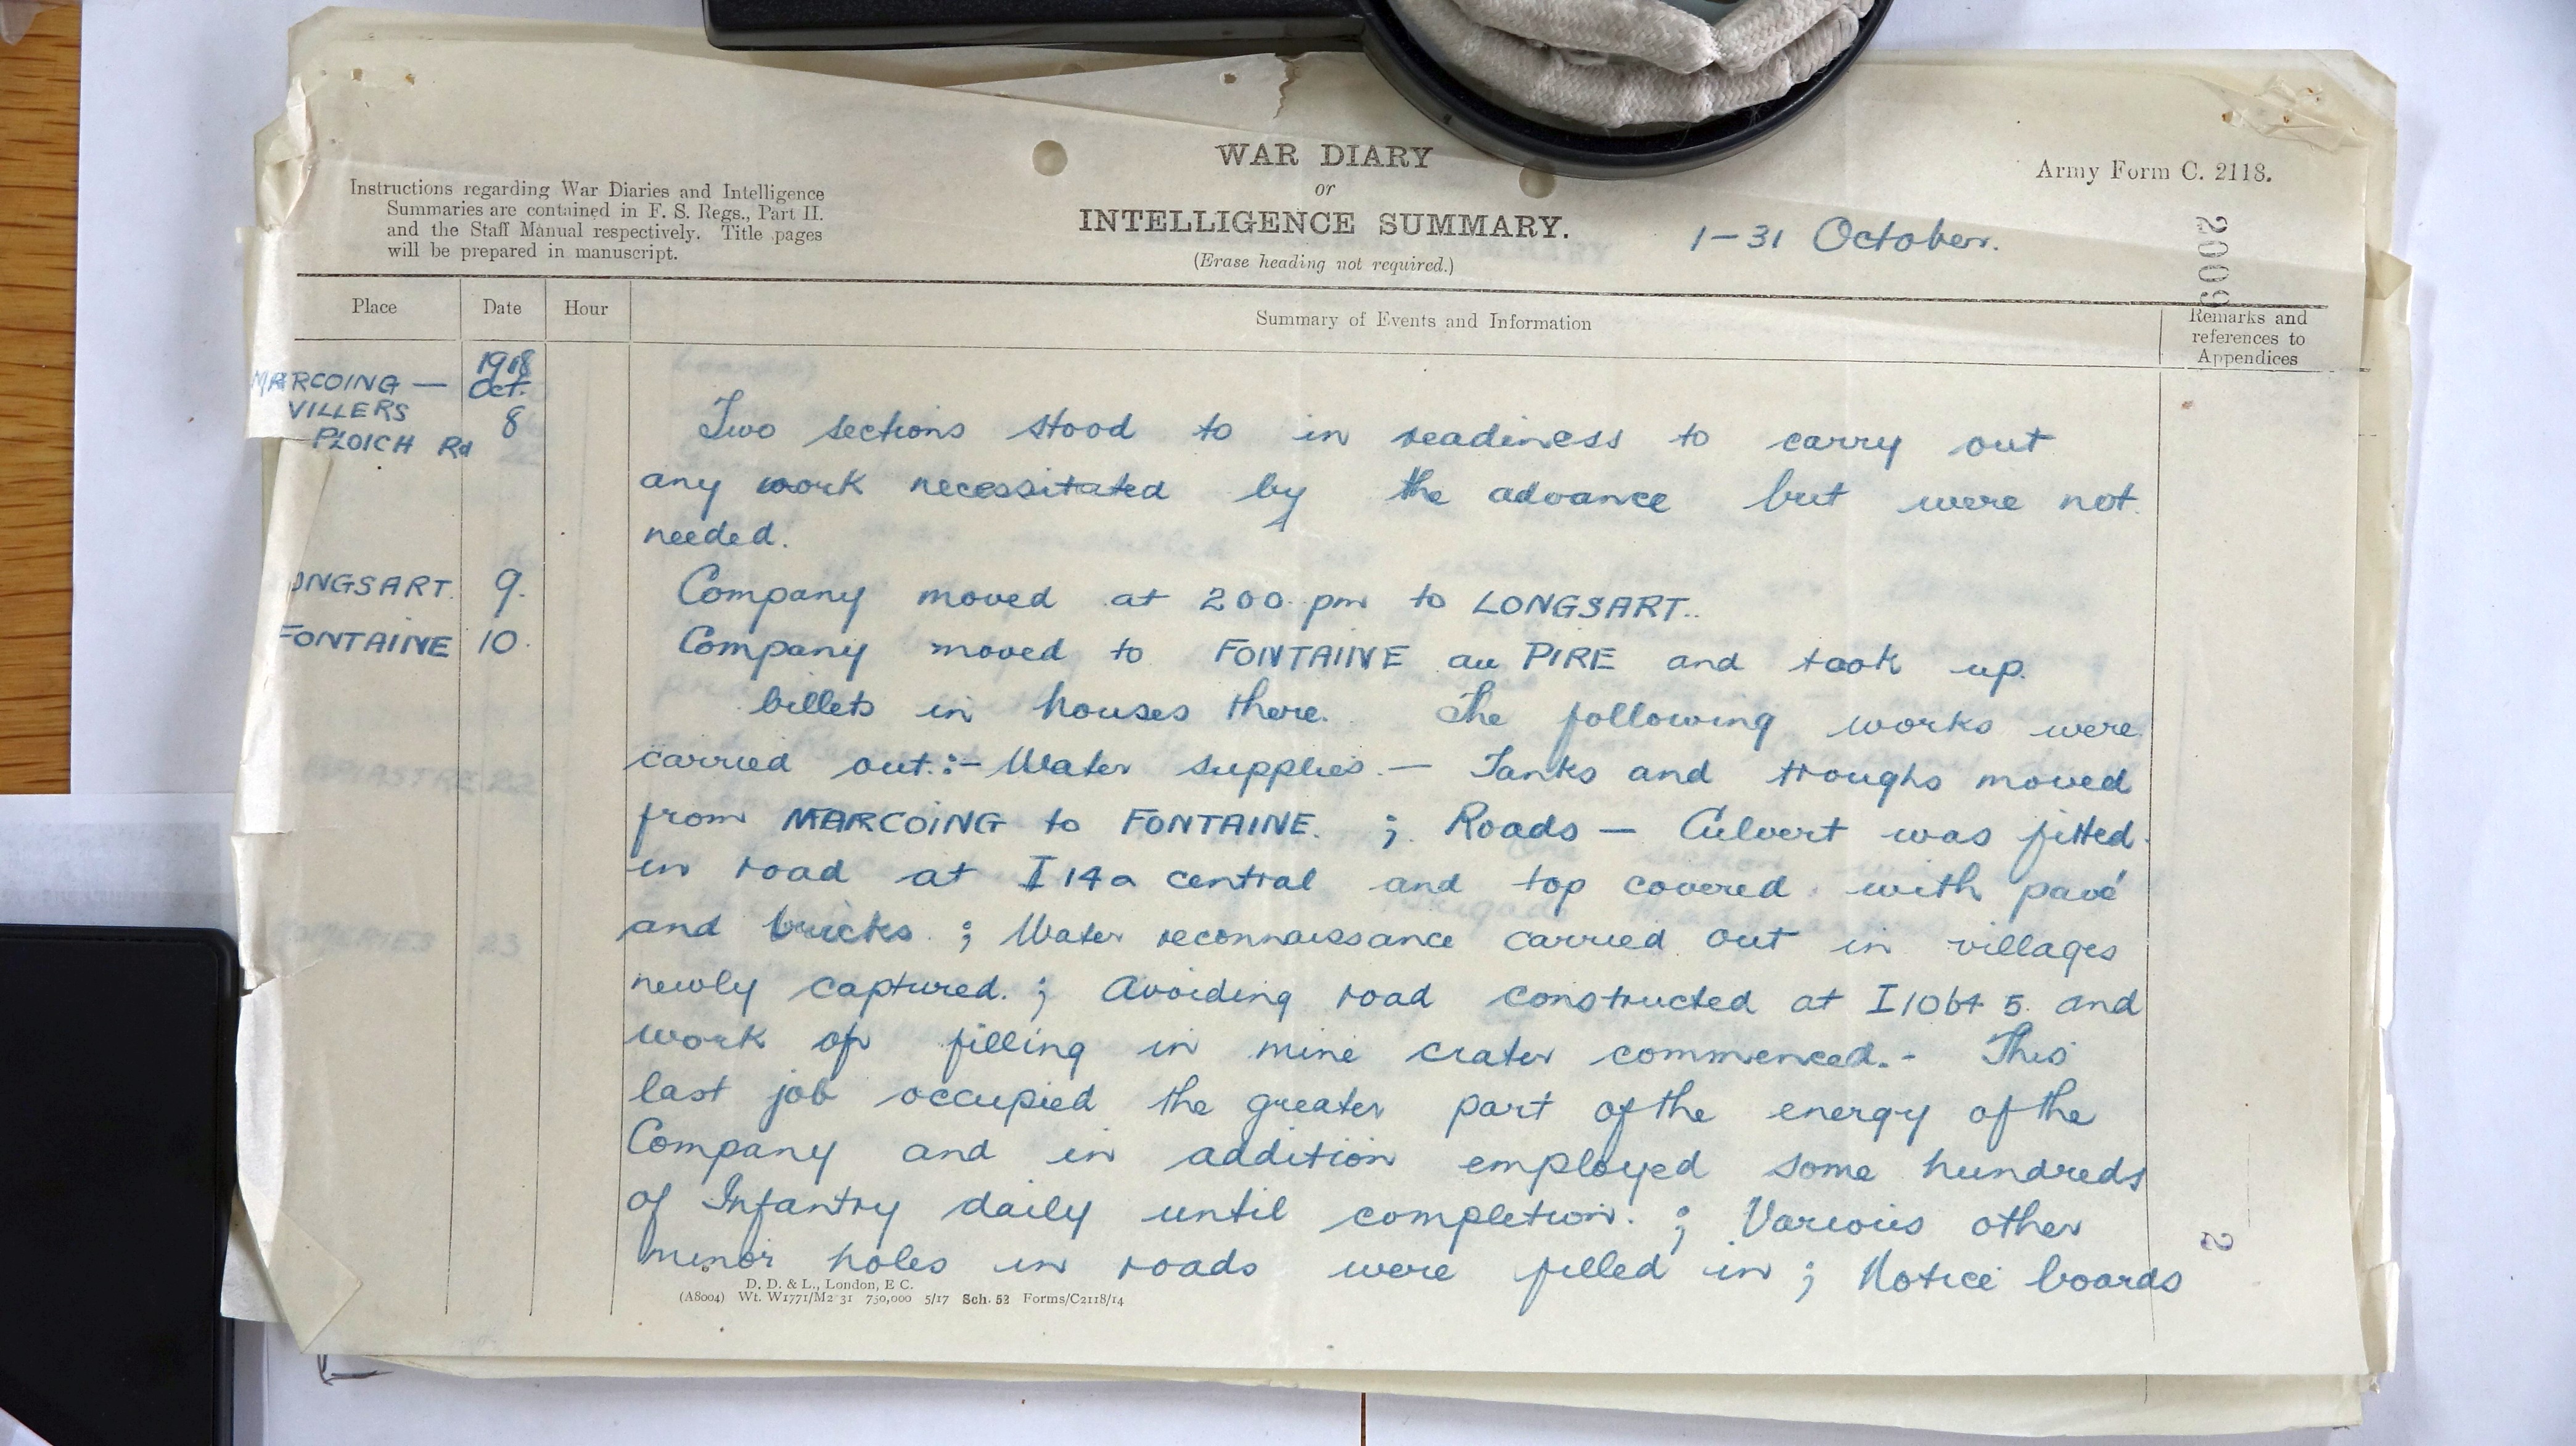 WAR DIARY
or
INTELLIGENCE SUMMARY.
(Erase heading not required.)
Army Form C. 2118.
Instructions regarding War Diaries and Intelligence
Summaries are contained in F. S. Regs., Part II.
and the Staff Manual respectively. Title pages
will be prepared in manuscript.
1-31 October.
2009
Place Date Hour Summary of Events and Information Remarks and
references to
Appendices
MARCOING —
VILLERS
PLOICH Rd
1918
Oct.
8
Two sections stood to in readiness to carry out
any work necessitated by the advance but were not
needed.
ONGSART. 9. Company moved at 200 pm to LONGSART.
FONTAINE 10. Company moved to FONTAINE au PIRE and took up
billets in houses there. The following works were
carried out:- Water supplies. — Tanks and troughs moved
from MARCOING to FONTAINE. ; Roads — Culvert was fitted
in road at I14a central and top covered with pavé
and bricks ; Water reconnaissance carried out in villages
newly captured. ; Avoiding road constructed at I10b4 5 and
work of filling in mine crater commenced.- This
last job occupied the greater part of the energy of the
Company and in addition employed some hundreds
of Infantry daily until completion. ; Various other
minor holes in roads were filled in ; Notice boards
2
D. D. & L., London, E C.
(A8004) Wt. W1771/M2 31 750,000 5/17 Sch. 52 Forms/C2118/14